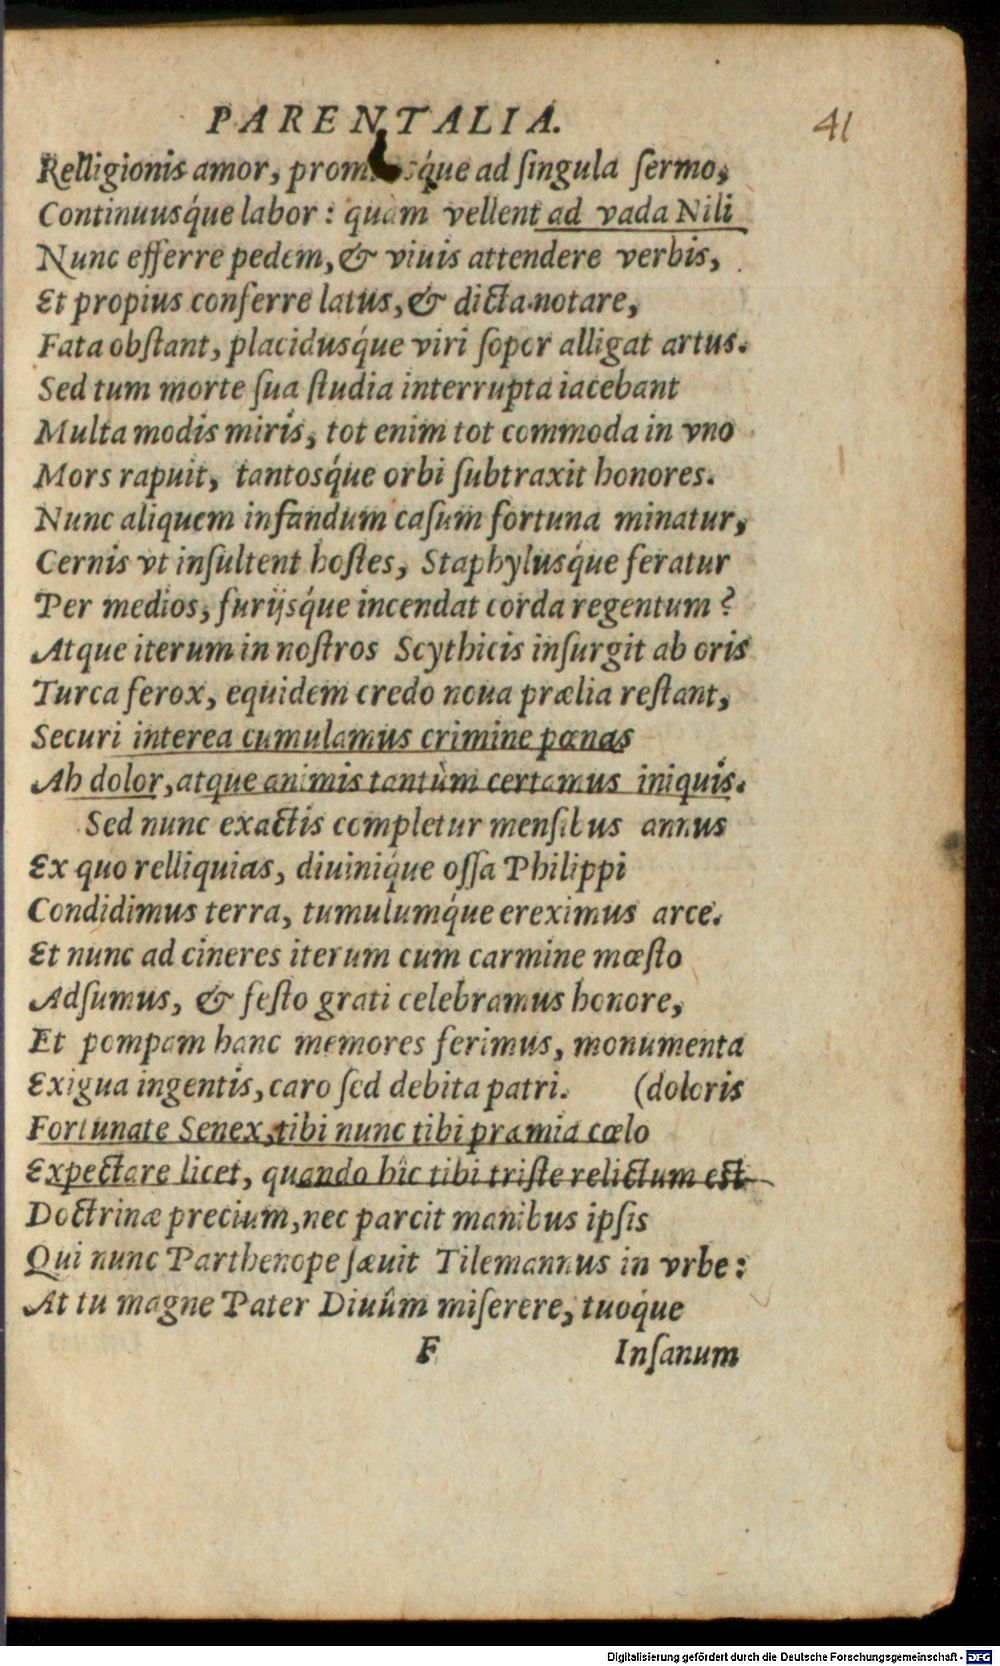 PARENTALIA.
41
Relligionis amor, sq́ue ad ſingula ſermo,
Continuusq́ue labor : quam vellent ad vada Nili
Nunc efferre pedem, & viuis attendere verbis,
Et propius conferre latus, & dicta notare,
Fata obſtant, placidusq́ue viri ſopor alligat artus.
Sed tum morte ſua ſtudia interrupta iacebant
Multa modis miris, tot enim tot commoda in vno
Mors rapuit, tantosq́ue orbi ſubtraxit honores.
Nunc aliquem infandum caſum fortuna minatur,
Cernis vt inſultent hoſtes, Staphylusq́ue feratur
Per medios, furijsq́ue incendat corda regentum ?
Atque iterum in noſtros Scythicis inſurgit ab oris
Turca ferox, equidem credo noua prælia reſtant,
Securi interea cumulamus crimine pœnas
Ah dolor, atque animis tantùm certamus iniquis.
Sed nunc exactis completur menſibus annus
Ex quo relliquias, diuiniq́ue oſſa Philippi
Condidimus terra, tumulumq́ue ereximus arce.
Et nunc ad cineres iterum cum carmine mœſto
Adſumus, & feſto grati celebramus honore,
Et pompam hanc memores ferimus, monumenta
Exigua ingentis, caro ſed debita patri. (doloris
Fortunate Senex, tibi nunc tibi præmia cœlo
Expectare licet, quando hîc tibi triſte relictum est
Doctrinæ precium, nec parcit manibus ipſis
Qui nunc Parthenope ſæuit Tilemannus in vrbe :
At tu magne Pater Diuûm miſerere, tuoq́ue
F Inſanum
Digitalisierung gefördert durch die Deutsche Forschungsgemeinschaft - DFG